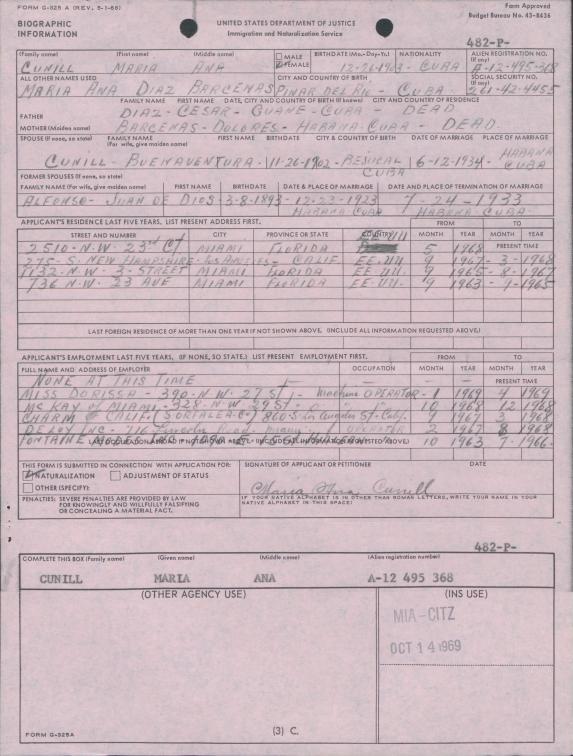 FORM G-325 A (REV. 5-1-68)
Form Approved
Budget Bureau No. 43-R436
BIOGRAPHIC INFORMATION
UNITED STATES DEPARTMENT OF JUSTICE
Immigration and Naturalization Service
482-P-
(Family name) (First name) (Middle name) MALE FEMALE BIRTHDATE (Mo.-Day-Yr.) NATIONALITY ALIEN REGISTRATION NO. (If any)
CUNILL MARIA ANA 12-26-1903 - CUBA A-12-495-368
ALL OTHER NAMES USED CITY AND COUNTRY OF BIRTH SOCIAL SECURITY NO. (If any)
MARIA ANA DIAZ BARCENAS PINAR DEL RIO - CUBA 261-42-4455
FAMILY NAME FIRST NAME DATE, CITY AND COUNTRY OF BIRTH (If known) CITY AND COUNTRY OF RESIDENCE
FATHER DIAZ - CESAR - GUANE - CUBA - DEAD
MOTHER (Maiden name) BARCENAS - DOLORES - HABANA - CUBA - DEAD
SPOUSE (If none, so state) FAMILY NAME (For wife, give maiden name) FIRST NAME BIRTHDATE CITY & COUNTRY OF BIRTH DATE OF MARRIAGE PLACE OF MARRIAGE
CUNILL - BUENAVENTURA - 11-26-1902 - BEJUCAL CUBA 6-12-1934 - HABANA CUBA
FORMER SPOUSES (If none, so state)
FAMILY NAME (For wife, give maiden name) FIRST NAME BIRTHDATE DATE & PLACE OF MARRIAGE DATE AND PLACE OF TERMINATION OF MARRIAGE
ALFONSO - JUAN DE DIOS - 3-8-1893 - 12-23-1923 7-24-1933
HABANA CUBA HABANA - CUBA
APPLICANT'S RESIDENCE LAST FIVE YEARS. LIST PRESENT ADDRESS FIRST. FROM TO
STREET AND NUMBER CITY PROVINCE OR STATE COUNTRY MONTH YEAR MONTH YEAR
2510 - N.W. 23rd CT MIAMI FLORIDA EE.UU 5 1968 PRESENT TIME
275 - S. NEW HAMPSHIRE - LOS ANGELES - CALIF EE.UU. 9 1967 - 3 - 1968
1132 N.W. 3 - STREET MIAMI FLORIDA EE.UU. 9 1965 - 8 - 1967
736 N.W. 23 AVE MIAMI FLORIDA EE.UU. 9 1963 - 9 - 1965
LAST FOREIGN RESIDENCE OF MORE THAN ONE YEAR IF NOT SHOWN ABOVE. (INCLUDE ALL INFORMATION REQUESTED ABOVE)
APPLICANT'S EMPLOYMENT LAST FIVE YEARS. (IF NONE, SO STATE.) LIST PRESENT EMPLOYMENT FIRST. FROM TO
FULL NAME AND ADDRESS OF EMPLOYER OCCUPATION MONTH YEAR MONTH YEAR
NONE AT THIS TIME PRESENT TIME
MISS DORISSA - 390 - N.W. 27 St - Machine OPERATOR - 1 1969 4 1969
MC KAY OF MIAMI - 328 - N.W. 29 St - 10 1968 12 1968
CHARM OF CALIF - 860 - S - Los Angeles St - Calif. 9 1967 3 1968
INC - 716 Lincoln Road OPERATOR 2 1967 8 1968
LAST OCCUPATION ABROAD IF NOT SHOWN ABOVE. (INCLUDE ALL INFORMATION REQUESTED ABOVE)
FONTAINE 10 1963 7 - 1966
THIS FORM IS SUBMITTED IN CONNECTION WITH APPLICATION FOR: SIGNATURE OF APPLICANT OR PETITIONER DATE
NATURALIZATION ADJUSTMENT OF STATUS
OTHER (SPECIFY):
Maria Ana Cunill
PENALTIES: SEVERE PENALTIES ARE PROVIDED BY LAW FOR KNOWINGLY AND WILLFULLY FALSIFYING OR CONCEALING A MATERIAL FACT.
IF YOUR NATIVE ALPHABET IS IN OTHER THAN ROMAN LETTERS, WRITE YOUR NAME IN YOUR NATIVE ALPHABET IN THIS SPACE:
482-P-
COMPLETE THIS BOX (Family name) (Given name) (Middle name) (Alien registration number)
CUNILL MARIA ANA A-12 495 368
(OTHER AGENCY USE) (INS USE)
MIA-CITZ
OCT 14 1969
FORM G-325A
(3) C.